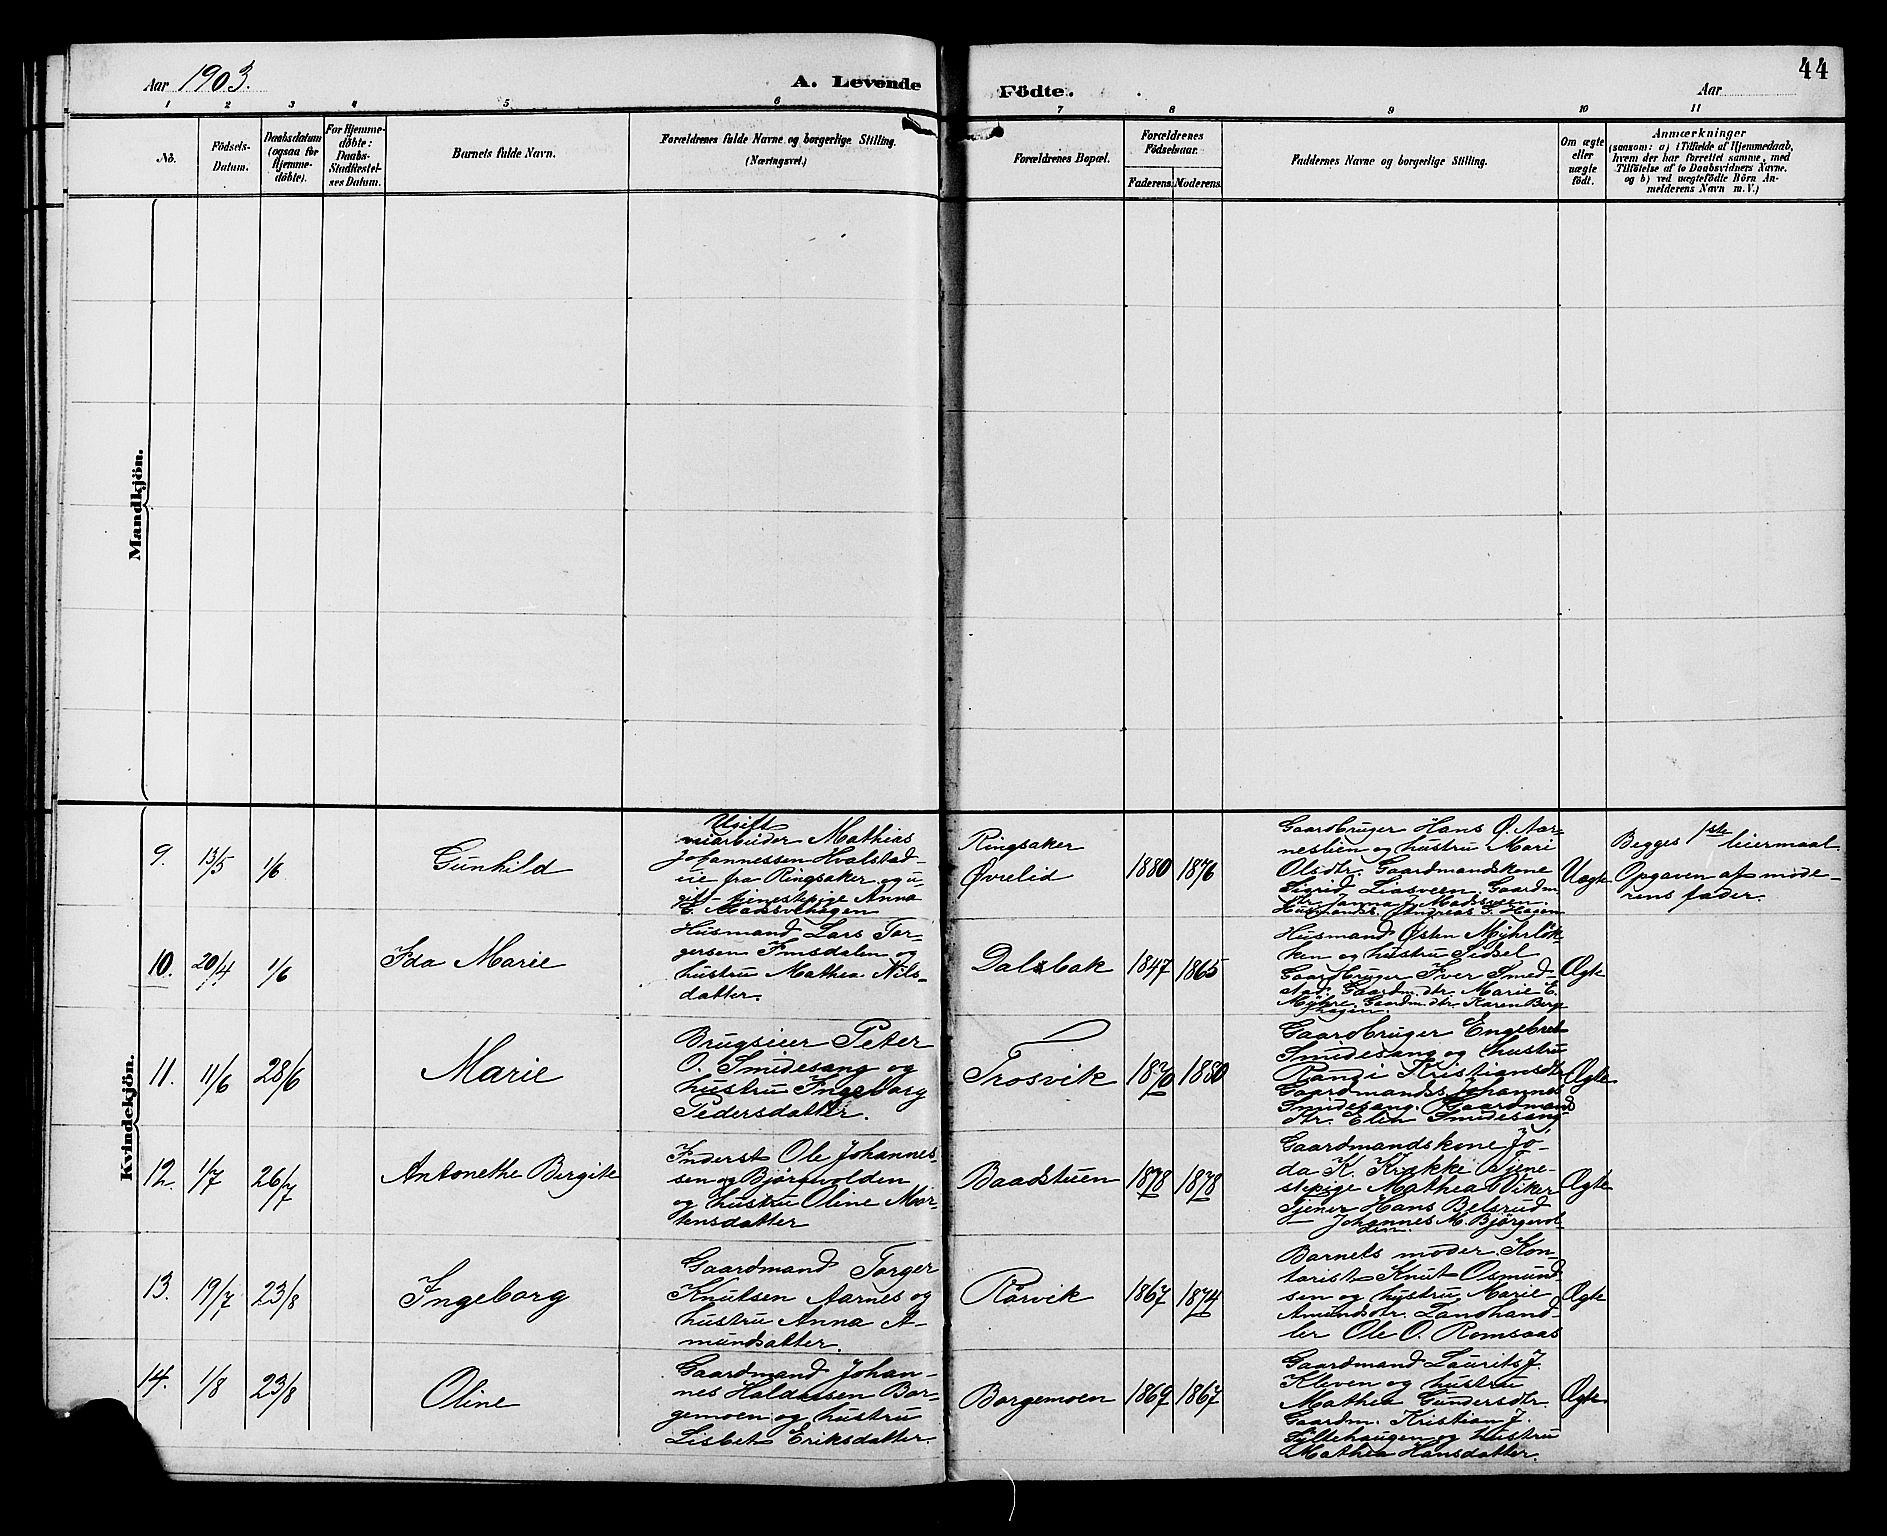 Aar 1903.
A. Levende
Födte.
Aar
44
1 2 3 4 5 6 7 8 9 10 11
No.
Födsels-
Datum.
Daabsdatum
(ogsaa for
Hjemme-
döbte).
For Hjemme-
döbte:
Daabs-
Stadfæstel-
ses Datum.
Barnets fulde Navn.
Forældrenes fulde Navne og borgerlige Stilling.
(Næringsvei.)
Forældrenes Bopæl.
Forældrenes
Födselsaar.
Faderens.
Moderens.
Faddernes Navne og borgerlige Stilling.
Om ægte
eller
uægte
født.
Anmærkninger
(saasom: a) i Tilfælde af Hjemmedaab,
hvem der har forrettet samme, med
Tilföielse af to Daabsvidners Navne.
og b) ved uægtefödte Börn An-
melderens Navn m. V.)
Mandkjön.
Kvindekjön.
9.
13/5
1/6
Gunhild
Ugift
veiarbeider Mathias
Johannessen Hvalstad-
eie fra Ringsaker og u-
gift tjenestepige Anna
E. Madsvehagen
Ringsaker
Øvrelid
1880
1876
Gaardbruger Hans Ø. Aar-
nestien og hustru Mari
Olsdtr. Gaardmandskone
Sigrid Liasveen. Gaardm.
dtr. Janna J. Madsveen.
Husmands. Andreas G. Hagen
Uægte
Begges 1ste leiermaal.
Opgaven af mode-
rens fader.
10.
20/4
1/6
Ida Marie
Husmand Lars Tor-
gersen Imsdalen og
hustru Mathea Nils-
datter.
Dalsbak
1847
1865
Husmand Østen Myhrløk-
ken og hustru Sidsel
Gaardbruger Iver Smed-
stad. Gaardm. dtr. Marie E.
Myhre. Gaardm. dtr. Karen Berg-
hagen.
Ægte
11.
11/6
28/6
Marie
Brugseier Peter
O. Smidesang og
hustru Ingeborg
Pedersdatter.
Trosvik
1870
1880
Gaardbruger Engebret
Smidesang og hustru
Rangi Kristiansdtr
Gaardmandss Johannes
Smidesang. Gaardmand
dtr. Elin Smidesang
Ægte
12.
1/7
26/7
Antonethe Bergite
Inderst Ole Johannes-
sen og Bjørgevolden
og hustru Oline Mor-
tensdatter
Baadstuen
1878
1878
Gaardmandskone Jo-
da K. Krukke Tjene-
stepige Mathea Viker
Tjener Hans Belsrud
— Johannes M. Bjørgevol-
den.
Ægte
13.
19/7
23/8
Ingeborg
Gaardmand Torger
Knutsen Aarnes og
hustru Anna A-
mundsatter.
Rørvik
1867
1874
Barnets moder. Kon-
torist Knut Osmund-
sen og hustru Marie
Amundsdtr. Landhand-
ler Ole O. Romsaas
Ægte
14.
1/8
23/8
Oline
Gaardmand Johan-
nes Haldorsen Bor-
gemoen og hustru
Lisbet Eriksdatter.
Borgemoen
1869
1867
Gaardmand Laurits J.
Kleven og hustru
Mathea Gundersdtr.
Gaardm. Kristian J.
Syltehaugen og hustru
Mathea Hansdatter.
Ægte